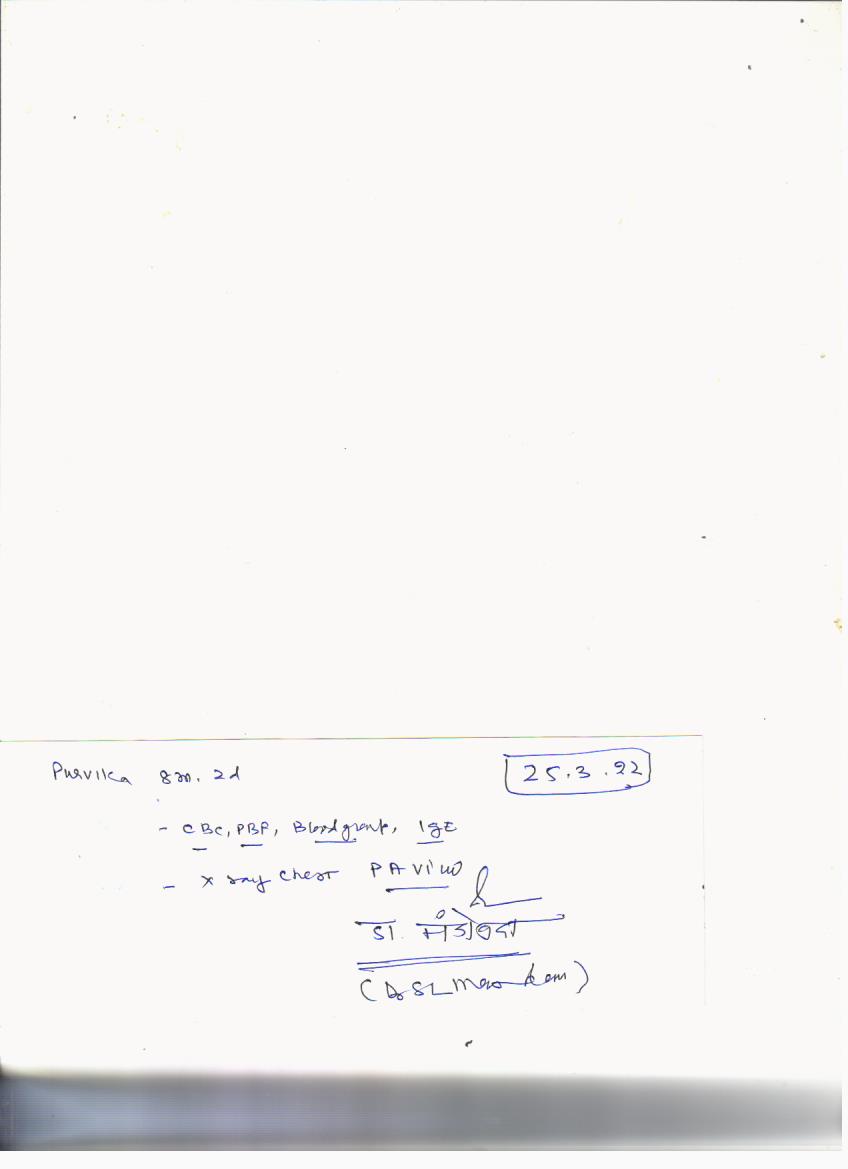 Purvika 8m. 2d
25.3.22
- CBC, PBF, Blood group, IgE
- X ray Chest PA View
डा.
(Dr SL